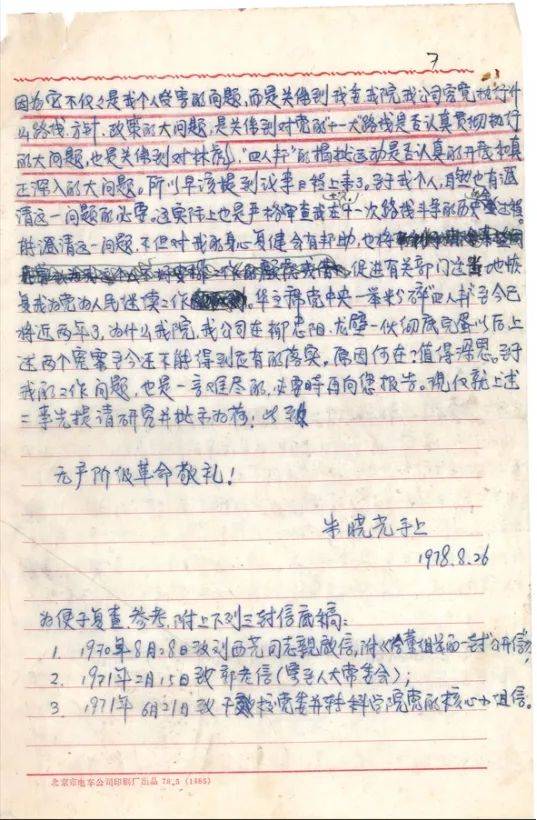 7
因为它不仅仅是我个人受害的问题,而是关系到我委我院我公司究竟执行什
么路线、方针、政策的大问题,是关系到对党的十一大路线是否认真贯彻执行
的大问题,也是关系到对林彪、“四人帮”的揭批运动是否认真的开展和真
正深入的大问题。所以早该提到议事日程上来了。至于我个人,自然也有澄
清这一问题的必要。这实际上也是严格审查我在十一次路线斗争的历史过程。
能澄清这一问题,不但对我的身心复健会有帮助,也将
促进有关部门适当地恢
复我为党为人民继续工作。华主席党中央一举粉碎“四人帮”至今已
将近两年了,为什么我院、我公司在柳忠阳、龙壁一伙彻底完蛋以后上
述两个冤案至今还不能得到应有的落实。原因何在?值得深思。至于
我的工作问题,也是一言难尽的,必要时再向您报告。现仅就上述
二事先提请研究并批示为荷!此致
无产阶级革命敬礼!
朱晓尧手上
1978.8.26
为便于复查参考,附上下列三封信底稿:
1. 1970年8月28日致刘西尧同志亲启信,附《给董组学的一封公开信》;
2. 1971年2月15日致郭老信(寄至人大常委会);
3. 1971年6月21日致干校党委并转科学院党的核心小组信。
北京市电车公司印刷厂出品 78.5 (1485)